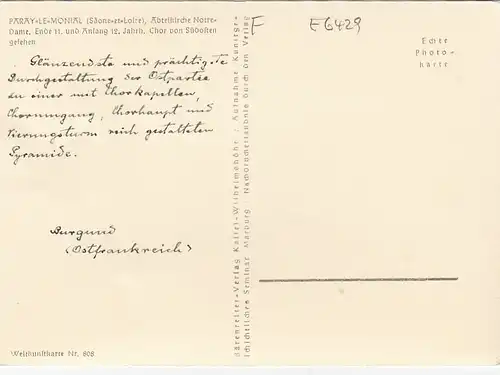 PARAY-LE-MONIAL (Sâone-et-Loire), Abteikirche Notre-
Dame. Ende 11. und Anfang 12. Jahrh. Chor von Südosten
gesehen
Glänzendste und prächtigste
Durchgestaltung der Ostpartie
zu einer mit Chorkapellen,
Chorumgang, Chorhaupt und
Vierungsturm reich gestalteten
Pyramide.
Burgund
(Ostfrankreich)
Weltkunstkarte Nr. 808
Bärenreiter-Verlag Kassel-Wilhelmshöhe / Aufnahme Kunstge-
schichtliches Seminar Marburg Nachdruckerlaubnis durch den Verlag
F E6429
Echte
Photo-
karte